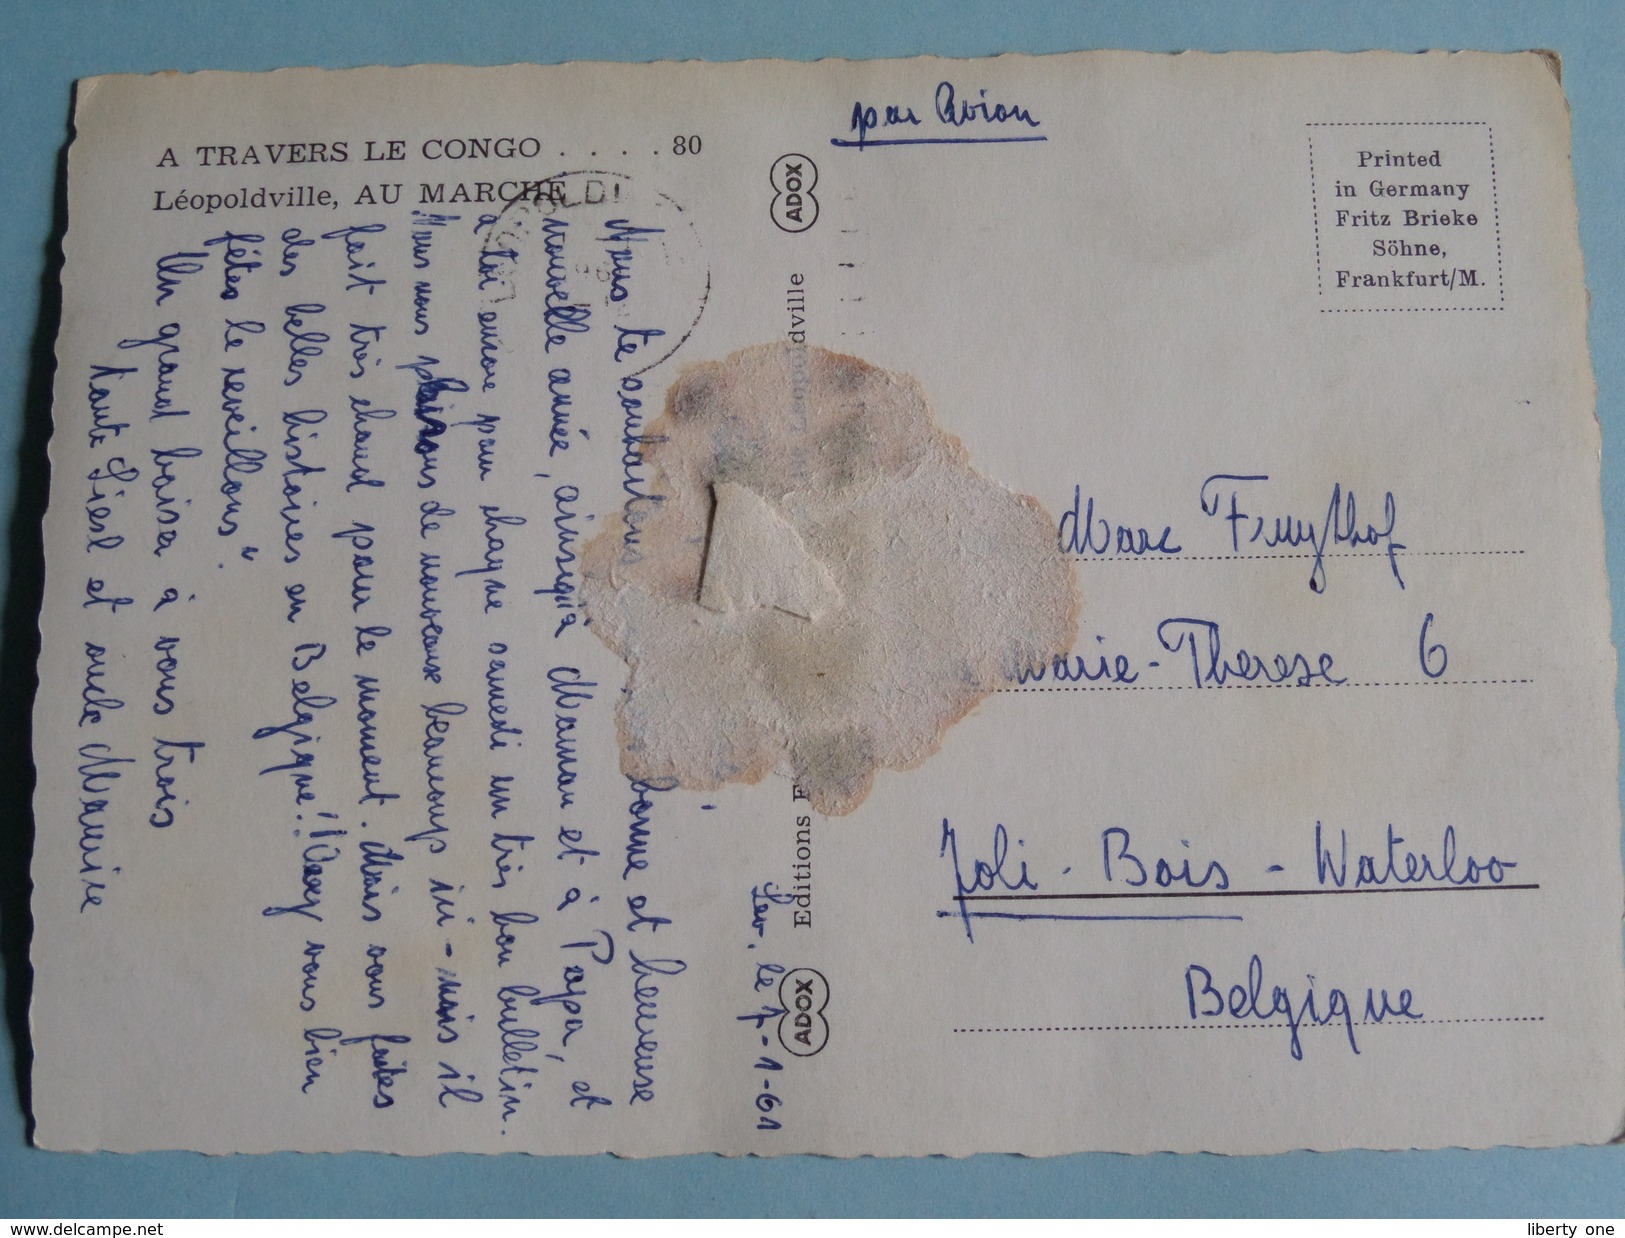 A TRAVERS LE CONGO . . . . 80
Léopoldville, AU MARCHE
par Avion
Printed
in Germany
Fritz Brieke
Söhne,
Frankfurt/M.
ADOX
Editions
Léopoldville
ADOX
Leo, le 7-1-61
Nous te souhaitons bonne et heureuse
nouvelle année, ainsiqu'à Maman et à Papa, et
à toi encore pour chaque samedi un très bon bulletin.
Nous nous plaisons de nouveau beaucoup ici - mais il
fait très chaud pour le moment. Mais vous faites
des belles histoires en Belgique! Avez vous bien
fêtes le reveillons".
Un grand baiser à vous trois
tante Liesl et oncle Maurice
Marc Fruythof
Marie-Therese 6
Joli - Bois - Waterloo
Belgique
www.delcampe.net
liberty one